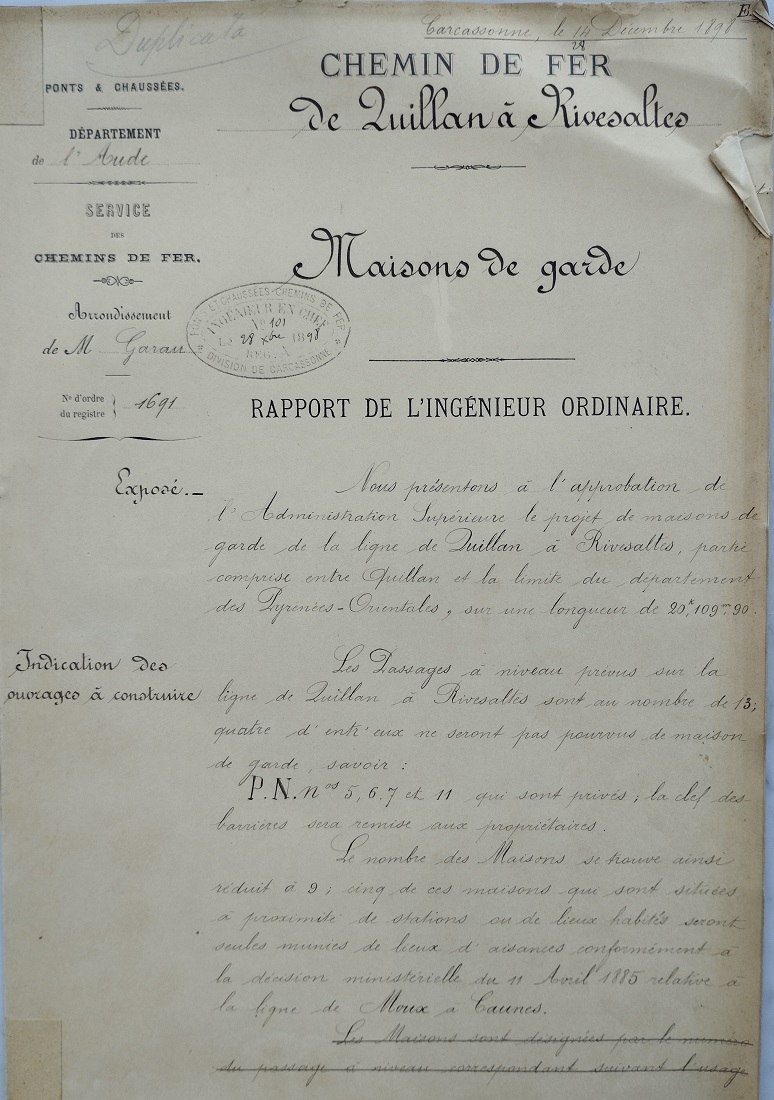 Duplicata
E.
Carcassonne, le 14 Décembre 1898
28
PONTS & CHAUSSÉES.
DÉPARTEMENT
de l'Aude
SERVICE
DES
CHEMINS DE FER.
Arrondissement
de M Garau
Nº d'ordre
du registre } 1691
CHEMIN DE FER
de Quillan à Rivesaltes
Maisons de garde
PONTS ET CHAUSSÉES-CHEMINS DE FER
INGÉNIEUR EN CHEF
Nº 101
Le 28 Xbre 1898
REG. A
DIVISION DE CARCASSONNE
RAPPORT DE L'INGÉNIEUR ORDINAIRE.
Exposé._
Nous présentons à l'approbation de
l'Administration Supérieure le projet de maisons de
garde de la ligne de Quillan à Rivesaltes, partie
comprise entre Quillan et la limite du département
des Pyrénées-Orientales, sur une longueur de 20k,109m.90.
Indication des
ouvrages à construire
Les Passages à niveau prévus sur la
ligne de Quillan à Rivesaltes sont au nombre de 13;
quatre d'entr'eux ne seront pas pourvus de maison
de garde, savoir :
P.N. nos 5, 6, 7 et 11 qui sont privés ; la clef des
barrières sera remise aux propriétaires.
Le nombre des Maisons se trouve ainsi
réduit à 9 ; cinq de ces maisons qui sont situées
à proximité de stations ou de lieux habités seront
seules munies de lieux d'aisances conformément à
la décision ministérielle du 11 Avril 1885 relative à
la ligne de Moux à Caunes.
Les Maisons sont désignées par le numéro
du passage à niveau correspondant suivant l'usage